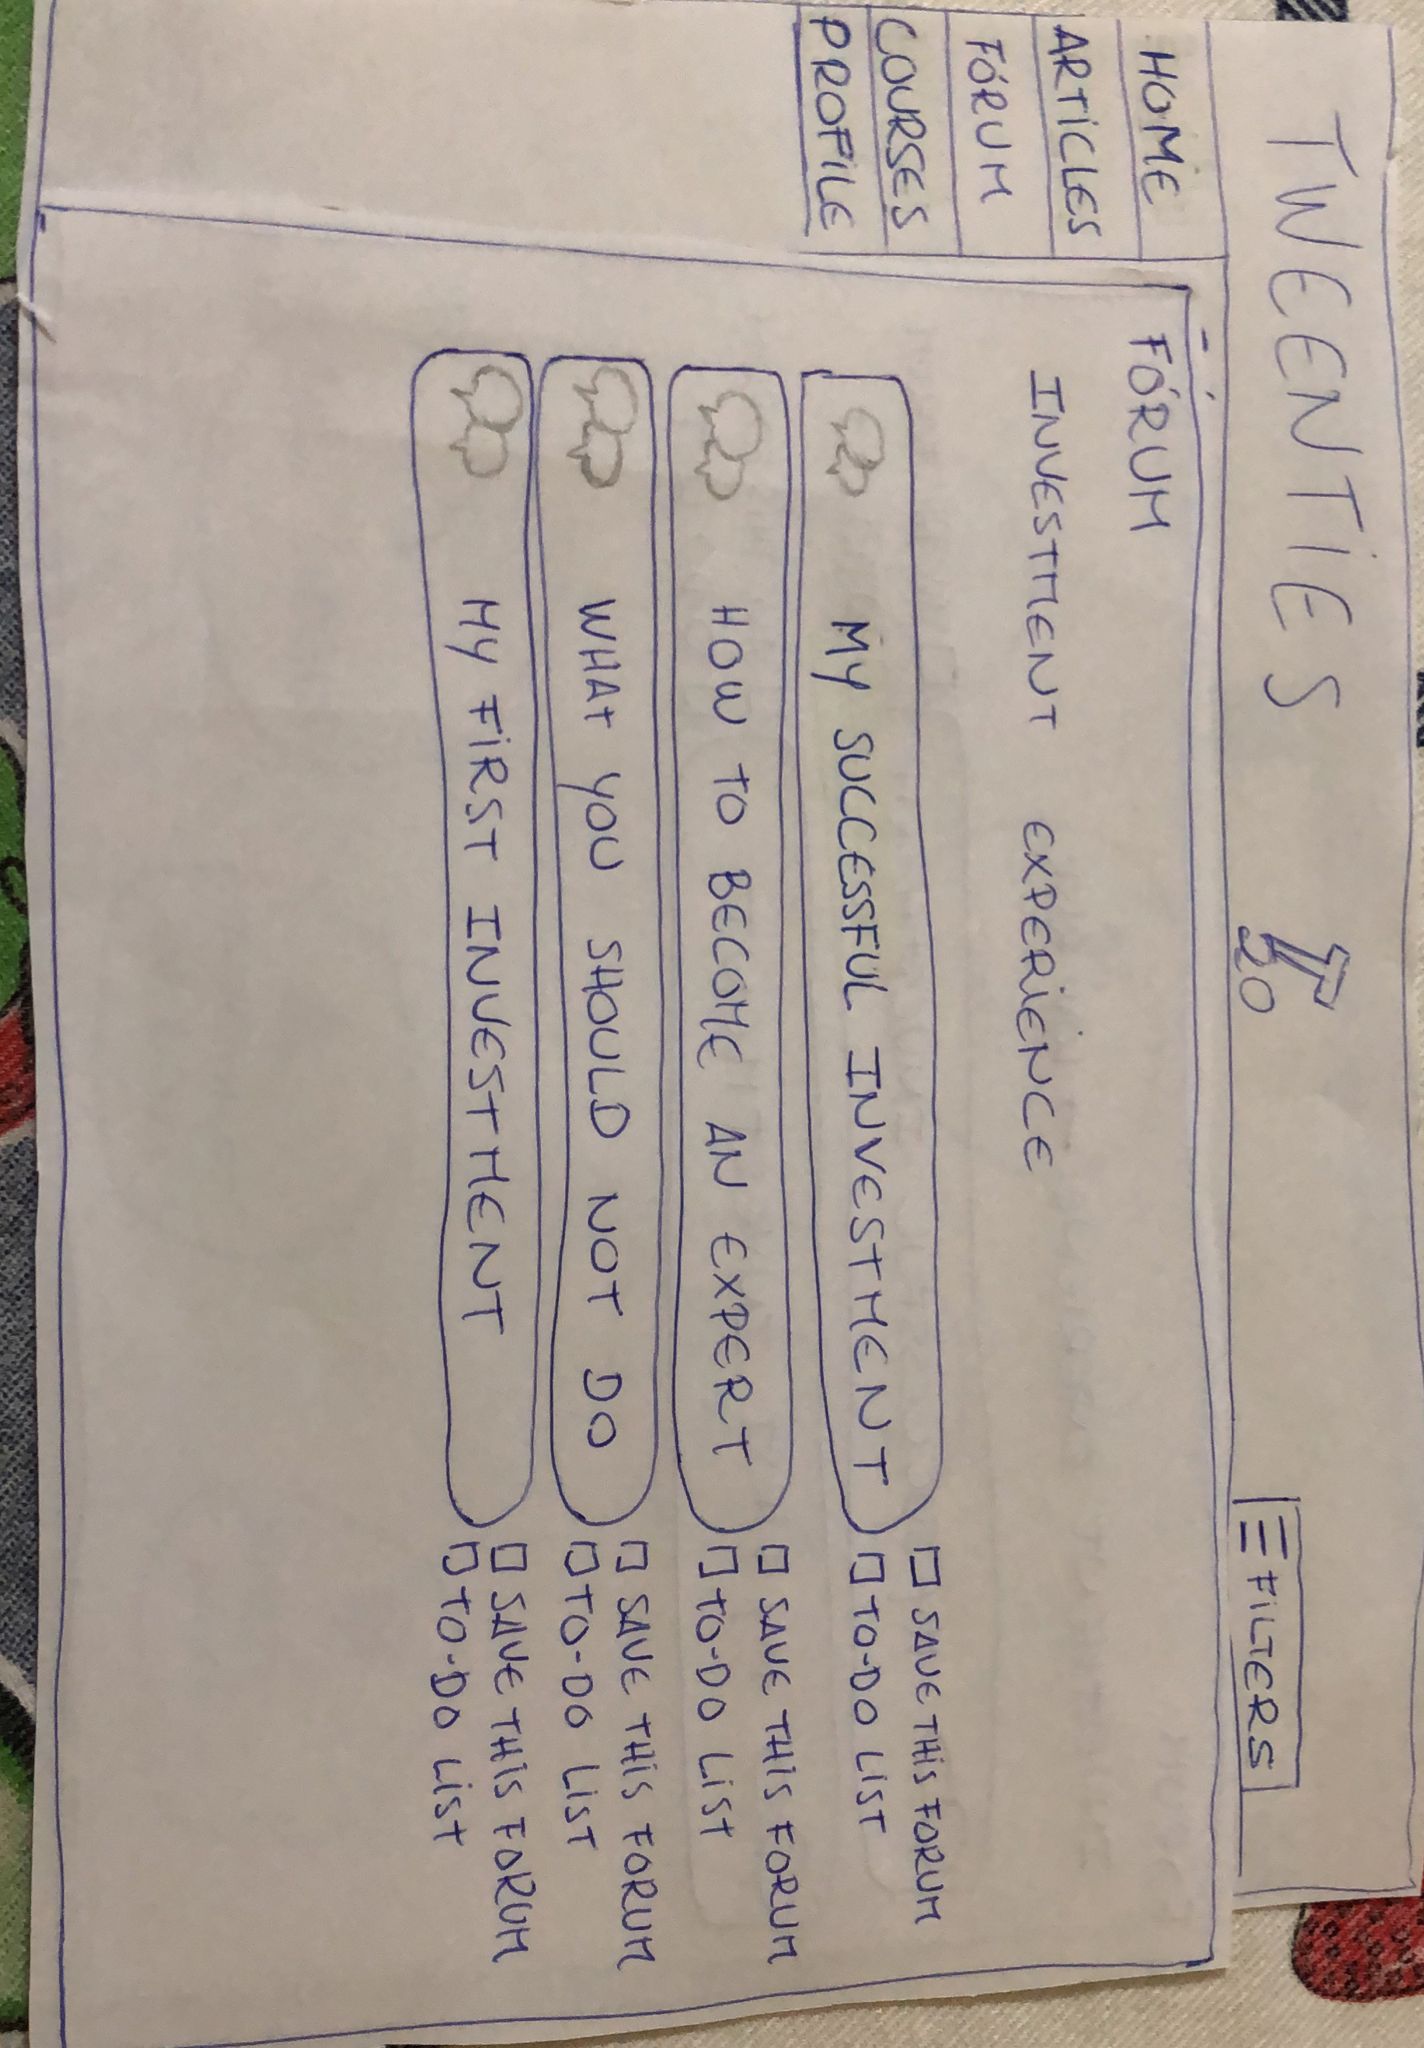 TWEENTIES
20
FILTERS
HOME
ARTICLES
FÓRUM
COURSES
PROFILE
FÓRUM
INVESTMENT EXPERIENCE
MY SUCCESSFUL INVESTMENT
SAVE THIS FORUM
TO-DO LIST
HOW TO BECOME AN EXPERT
SAVE THIS FORUM
TO-DO LIST
WHAT YOU SHOULD NOT DO
SAVE THIS FORUM
TO-DO LIST
MY FIRST INVESTMENT
SAVE THIS FORUM
TO-DO LIST